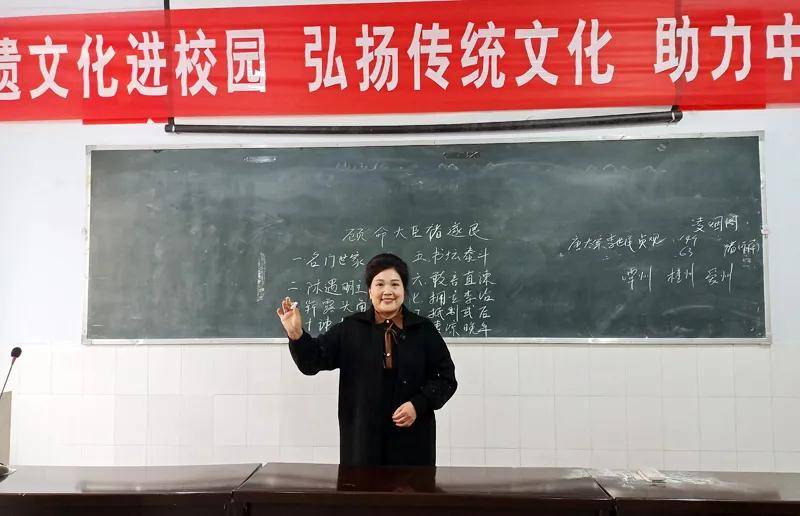 遗文化进校园 弘扬传统文化 助力中
顾命大臣褚遂良
一 名门世家 五. 书坛泰斗
二 陈遇明主 六. 敢言直谏
崭露头角 七. 拥立李治
抵制武后
凄凉晚年
凌烟阁
唐太宗李世民 贞观 149
63
潭州 桂州 爱州